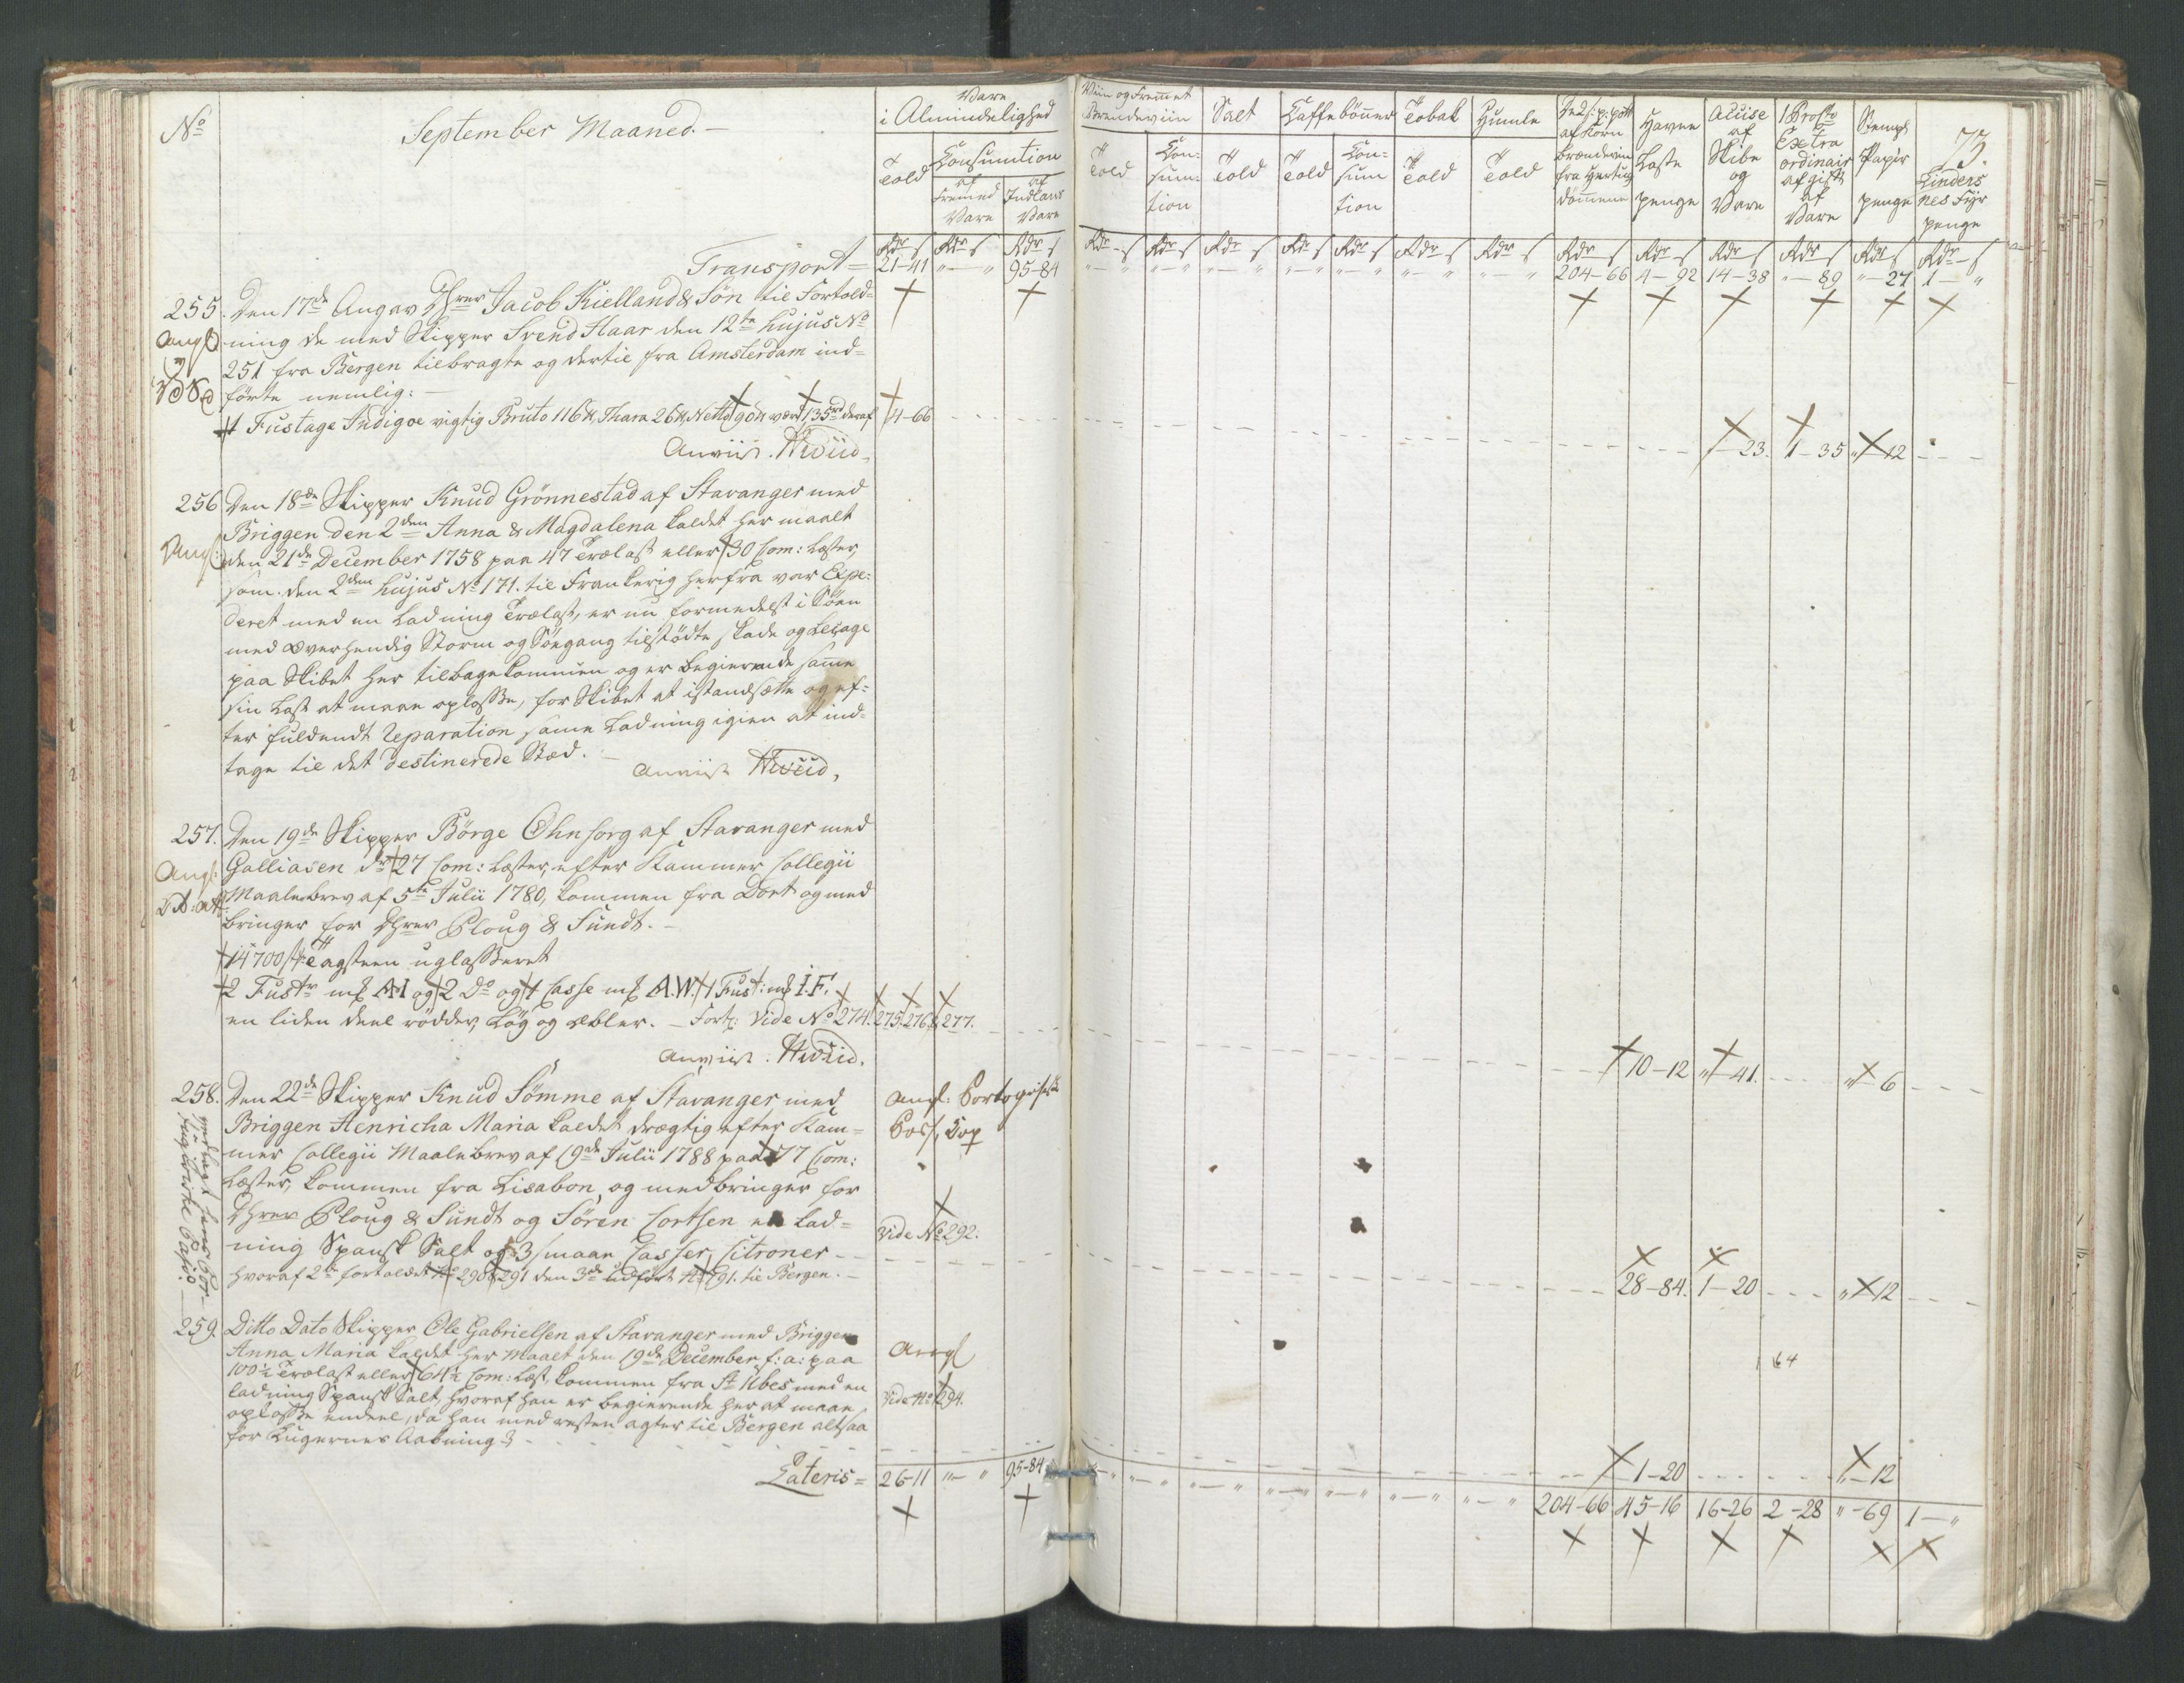 No
September Maaned.
Vare
i Almindelighed
Told
Consumtion
af Fremed Vare
af Indlans Vare
Viin og Fremmet
Brendeviin
Told
Con=
sum=
tion
Salt
Told
Caffebönner
Told
Con=
sum
tion
Tobak
Told
Humle
Told
af Korn
Brændeviin
fra Hertug
dömmene
Havne
Laste
penge
Accise
af
Skibe
og
Vare
1 Procto
Extra
ordinair
afgift
af
Vare
Stempl
Papir
penge
73.
Linders
nes Fyr
penge
Rdr s Rdr s Rdr s Rdr s Rdr s Rdr s Rdr s Rdr s Rdr s Rdr s Rdr s Rdr s Rdr s Rdr s Rdr s Rdr s
Transport= 21-41 "-" 95-84 "-" "-" "-" "-" "-" "-" "-" 204-66 4-92 14-38 "-89 "-27 1-"
255. Den 17de Angav Hrer Jacob Kielland & Søn til Fortold=
Angl ning de med Skipper Svend Haar den 12te hujus No
251 fra Bergen tilbragte og dertil fra Amsterdam ind=
förte nemlig:
1 Fustage Indigoe vigtig Bruto 116 ℔, Thara 26 ℔, Netto 90 ℔ værd 135 rd deraf 4-66 "-23. 1-35 "-12
Anviist. Hviid.
256 Den 18de Skipper Knud Grönnestad af Stavanger med
Briggen den 2den Anna & Magdalena kaldet her maalt
Angl: den 21de December 1758 paa 47 Trælast eller 30 Com: Læster,
som den 2den hujus No 171. til Frankerig herfra var Expe=
deret med en Ladning Trælast, er nu formedelst i Söen
med overhendig Storm og Söegang tilstödte skade og Lecage
paa Skibet her tilbagekommen og er begierende samme
sin Last at maae oplosse, for Skibet at istandsætte og ef=
ter fuldendt Reparation samme Ladning igien at ind=
tage til det destinerede Stæd.
Anviist Hviid,
257. Den 19de Skipper Börge Ohnsorg af Stavanger med
Angl: Galliasen dr: 27 Com: Læster, efter Kammer Collegii
Maalebrev af 5te Julii 1780, kommen fra Dort og med
bringer for Hrer Ploug & Sundt.
14700 st: Tagsteen uglasseret
2 Fustr mk AI og 2 Do og 1 Casse mk A.W. 1 Fust: mk I.F.
en liden deel rödder, Lög og Æbler. - Fort: Vide No 274. 275. 276 & 277.
Anviist. Hviid. 10-12 "-41. "-6
258. Den 22de Skipper Knud Sömme af Stavanger med Angl: Portogisisk
Briggen Henricha Maria kaldet drægtig efter Kam= Pass,
mer Collegii Maalebrev af 19de Julii 1788 paa 77 Com:
Læster, kommen fra Lisabon, og medbringer for
Hrer Ploug & Sundt og Sören Cortsen en Lad= Vide No 292.
ning Spansk Salt og 3 smaae Casser Citroner
hvoraf 2de fortoldet No 290 & 291 den 3de udfört No 791. til Bergen. 28-84. 1-20 "-12
259. Ditto Dato Skipper Ole Gabrielsen af Stavanger med Briggen
Anna Maria kaldet her maalt den 19de December f: a: paa Angl
100½ Trælast eller 64½ Com: Læst kommen fra St Ubes med en
ladning Spansk Salt, hvoraf han er begierende her at maae Vide No 294.
oplosse endeel, da han med resten agter til Bergen altsaa
for Lugernes Aabning 1-20 "-12
Lateris= 26-11 "-" 95-84 "-" "-" "-" "-" "-" "-" "-" 204-66 45-16 16-26 2-28 "-69 1-"